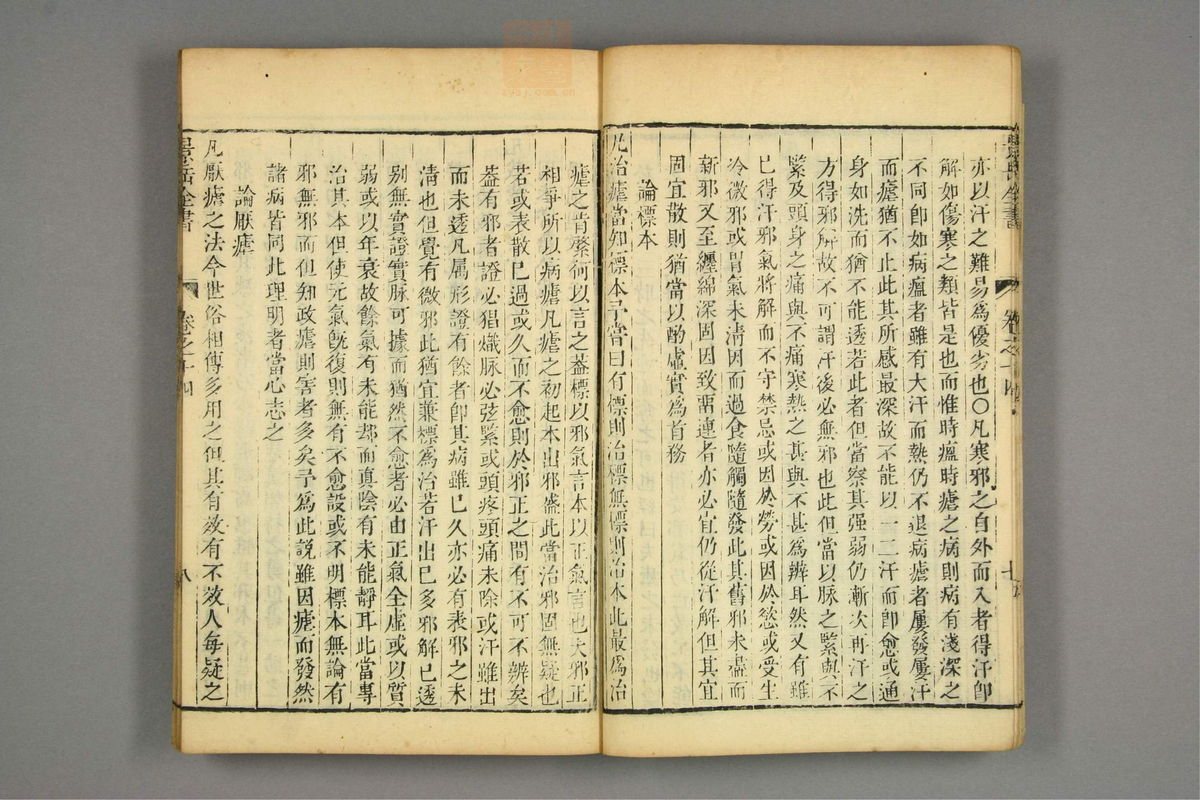 亦以汗之難易爲優劣也○凡寒邪之自外而入者得汗卽
解如傷寒之類皆是也而惟時瘟時瘧之病則病有淺深之
不同卽如病瘟者雖有大汗而熱仍不退病瘧者屢發屢汗
而瘧猶不止此其所感最深故不能以一二汗而卽愈或通
身如洗而猶不能透若此者但當察其强弱仍漸次再汗之
方得邪解故不可謂汗後必無邪也此但當以脉之緊與不
緊及頭身之痛與不痛寒熱之甚與不甚爲辨耳然又有雖
已得汗邪氣將解而不守禁忌或因於勞或因於慾或受生
冷微邪或胃氣未淸因而過食隨觸隨發此其舊邪未盡而
新邪又至纏綿深固因致畱連者亦必宜仍從汗解但其宜
固宜散則猶當以酌虛實爲首務
論標本
凡治瘧當知標本予嘗曰有標則治標無標則治本此最爲治
瘧之肯綮何以言之葢標以邪氣言本以正氣言也夫邪正
相爭所以病瘧凡瘧之初起本出邪盛此當治邪固無疑也
若或表散已過或久而不愈則於邪正之間有不可不辨矣
葢有邪者證必猖熾脉必弦緊或頭疼頭痛未除或汗雖出
而未透凡属形證有餘者卽其病雖已久亦必有表邪之未
淸也但覺有微邪此猶宜兼標爲治若汗出已多邪解已透
别無實證實脉可據而猶然不愈者必由正氣全虛或以質
弱或以年衰故餘氣有未能却而真陰有未能靜耳此當專
治其本但使元氣旣復則無有不愈設或不明標本無論有
邪無邪而但知攻瘧則害者多矣予爲此説雖因瘧而發然
諸病皆同此理明者當心志之
論厭瘧
凡厭瘧之法今世俗相傳多用之但其有效有不效人每疑之
景岳全書
卷之十四
七
景岳全書
卷之十四
八
zysj.com.cn